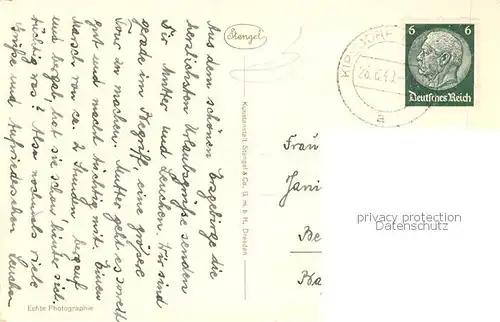 Aus dem schönen Erzgebirge die
herzlichsten Urlaubsgrüße senden
Dir Mutter und Lenchen. Wir sind
gerade im Begriff, eine größere
Tour zu machen. Mutter geht es soweit
gut und macht tüchtig mit. Einen
Marsch von ca. 2 Stunden bergauf
und bergab, hat sie schon hinter sich.
tüchtig was? Also nochmals viele
Grüße und Aufwiedersehen
Lenchen
Echte Photographie
Stengel
Kunstanstalt Stengel & Co. G. m. b. H., Dresden
6 6
Deutsches Reich
Frau
Be
privacy protection
Datenschutz